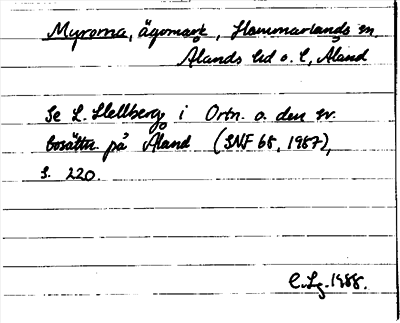 Myrorna, ägomark, Hammarlands sn,
Ålands hd o. l, Åland
Se L. Hellberg i Ortn. o. den sv.
bosättn. på Åland (SNF 68, 1987),
s. 220.
C. Lg. 1988.